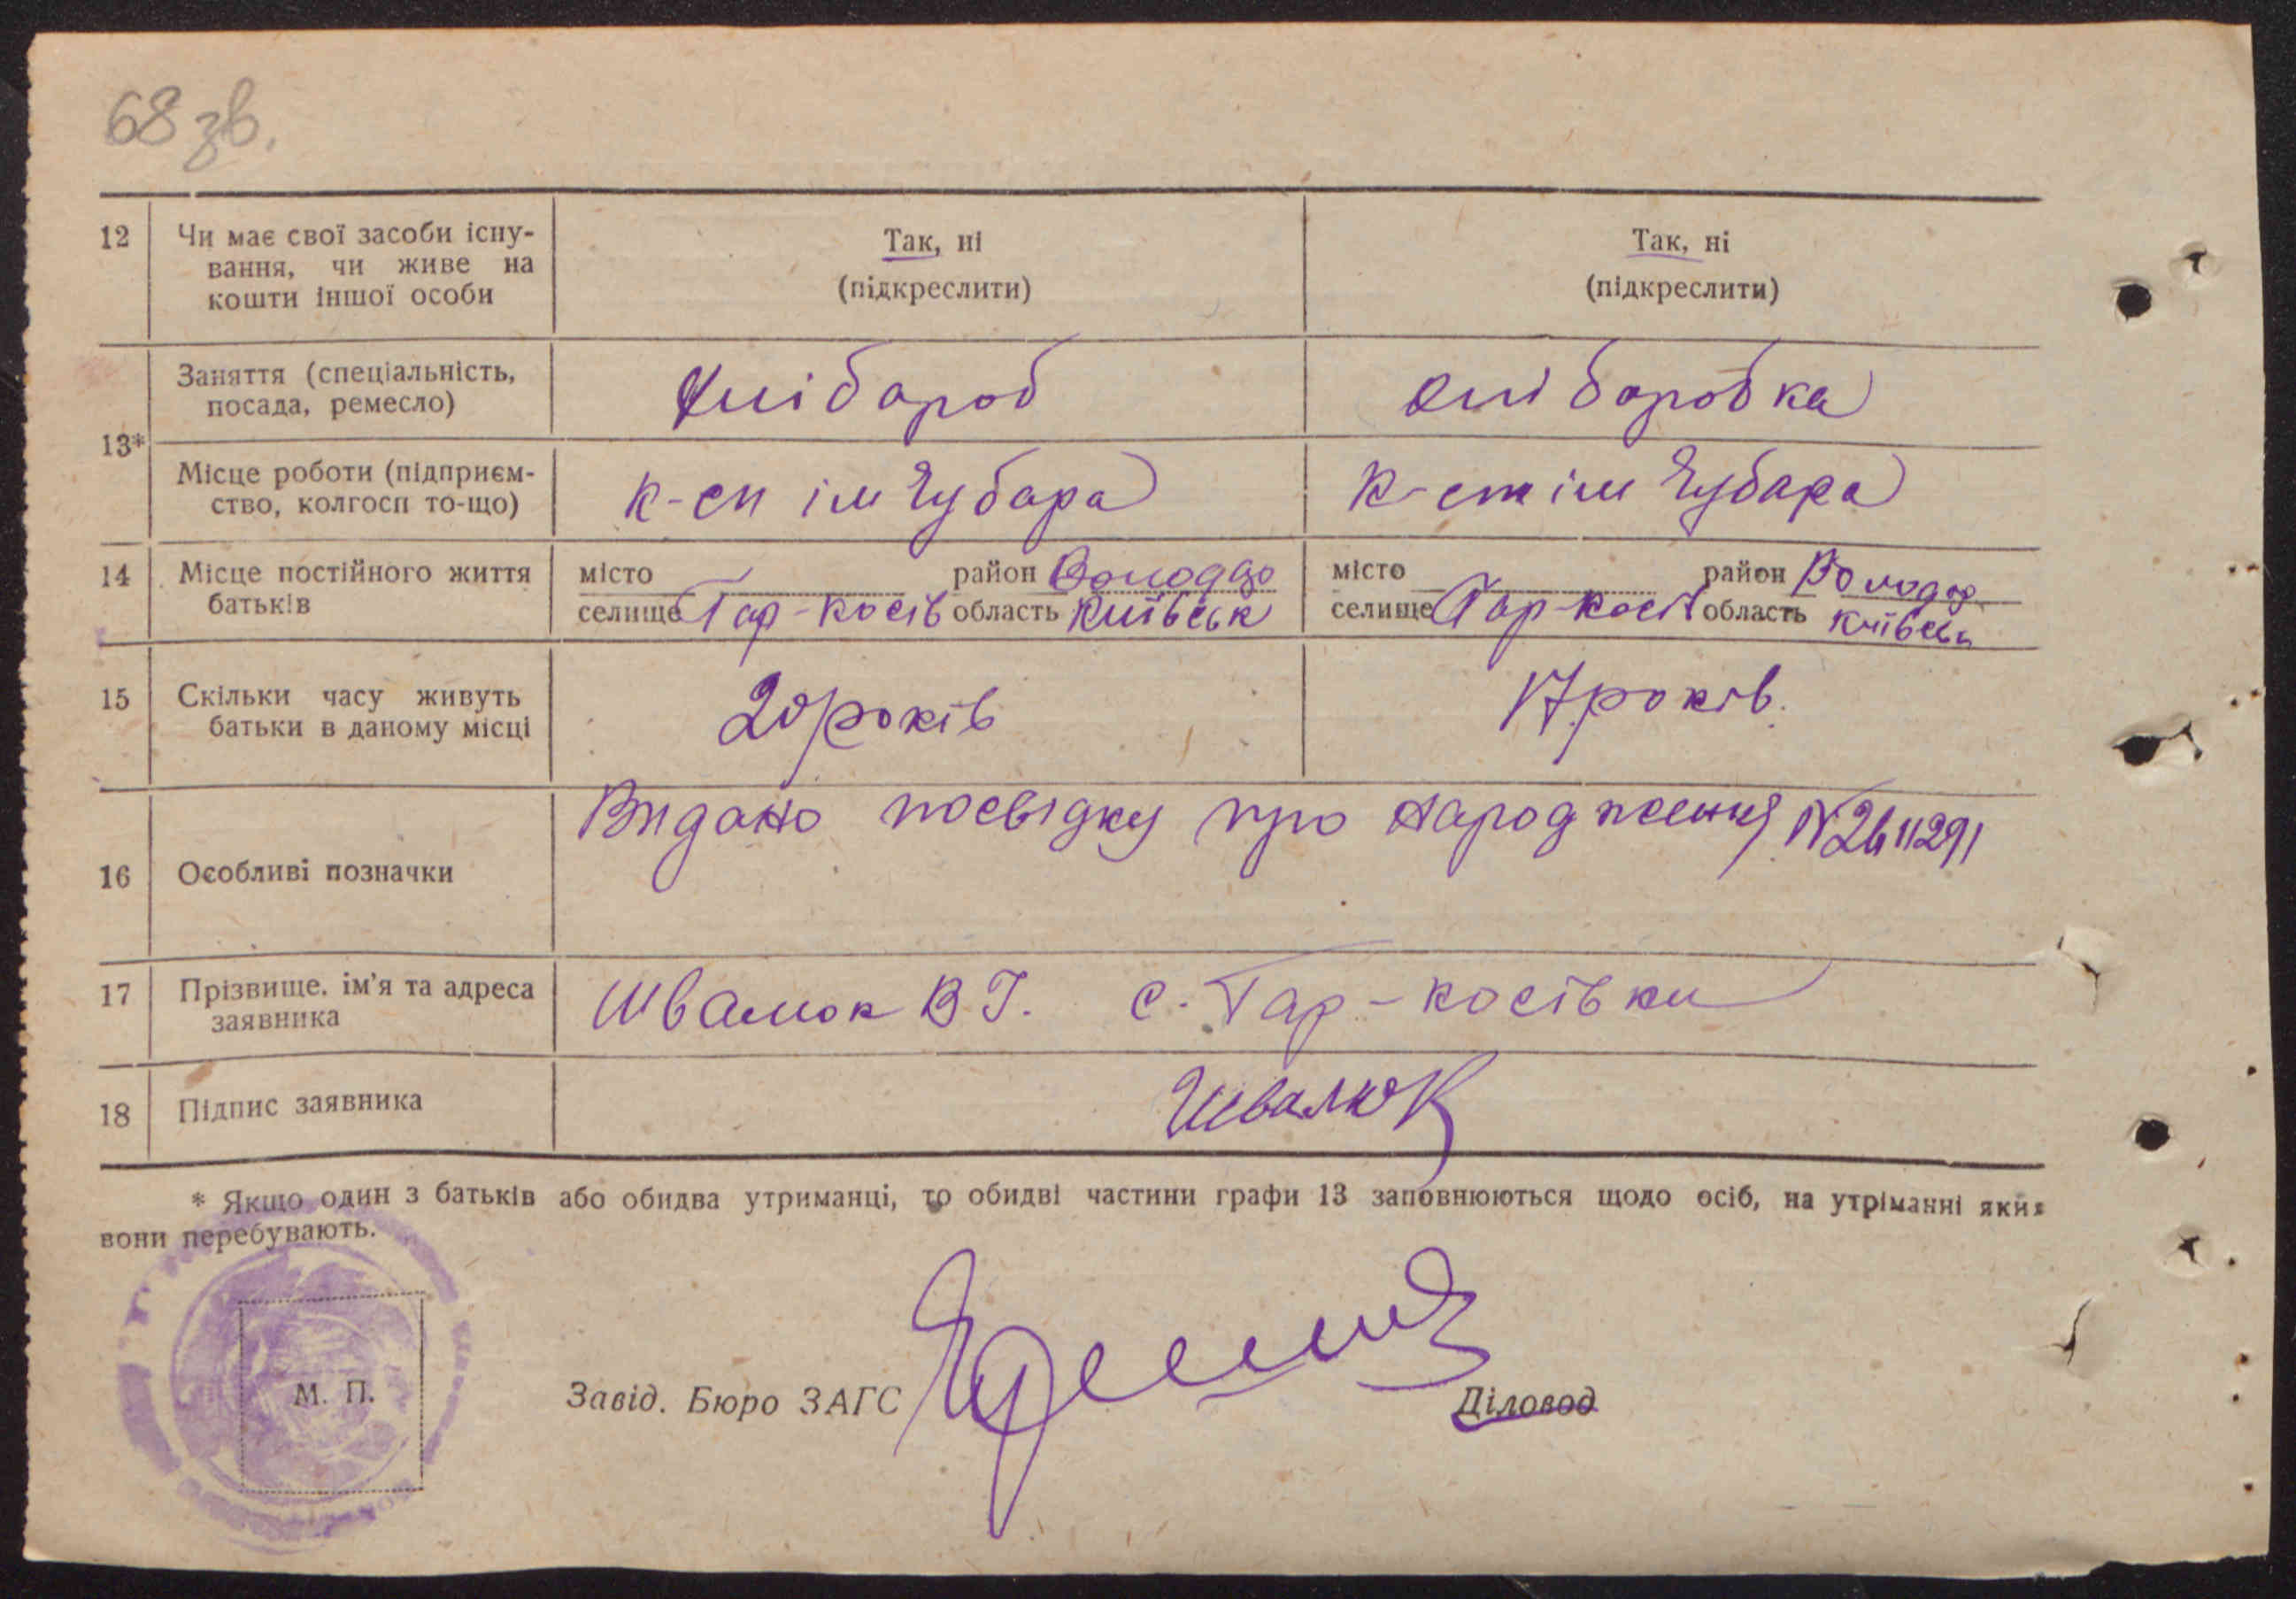 68 зв.
12 Чи має свої засоби існу-
вання, чи живе на
кошти іншої особи
Так, ні
(підкреслити)
Так, ні
(підкреслити)
13*
Заняття (спеціальність,
посада, ремесло)
Хлібороб
хліборобка
Місце роботи (підприєм-
ство, колгосп то-що)
к-сп ім Чубара
к-сп ім Чубара
14 Місце постійного життя
батьків
місто район Володар
селище Гар-косів область Київськ
місто район Володар
селище Гар-косів область Київськ
15 Скільки часу живуть
батьки в даному місці
20 років
17 років.
16 Особливі позначки
Видано посвідку про народження N 2611291
17 Прізвище, ім'я та адреса
заявника
Швалюк В Г. с. Гар-косівки
18 Підпис заявника
Швалюк
* Якщо один з батьків або обидва утриманці, то обидві частини графи 13 заповнюються щодо осіб, на утріманні яких
вони перебувають.
М. П.
Завід. Бюро ЗАГС
Діловод